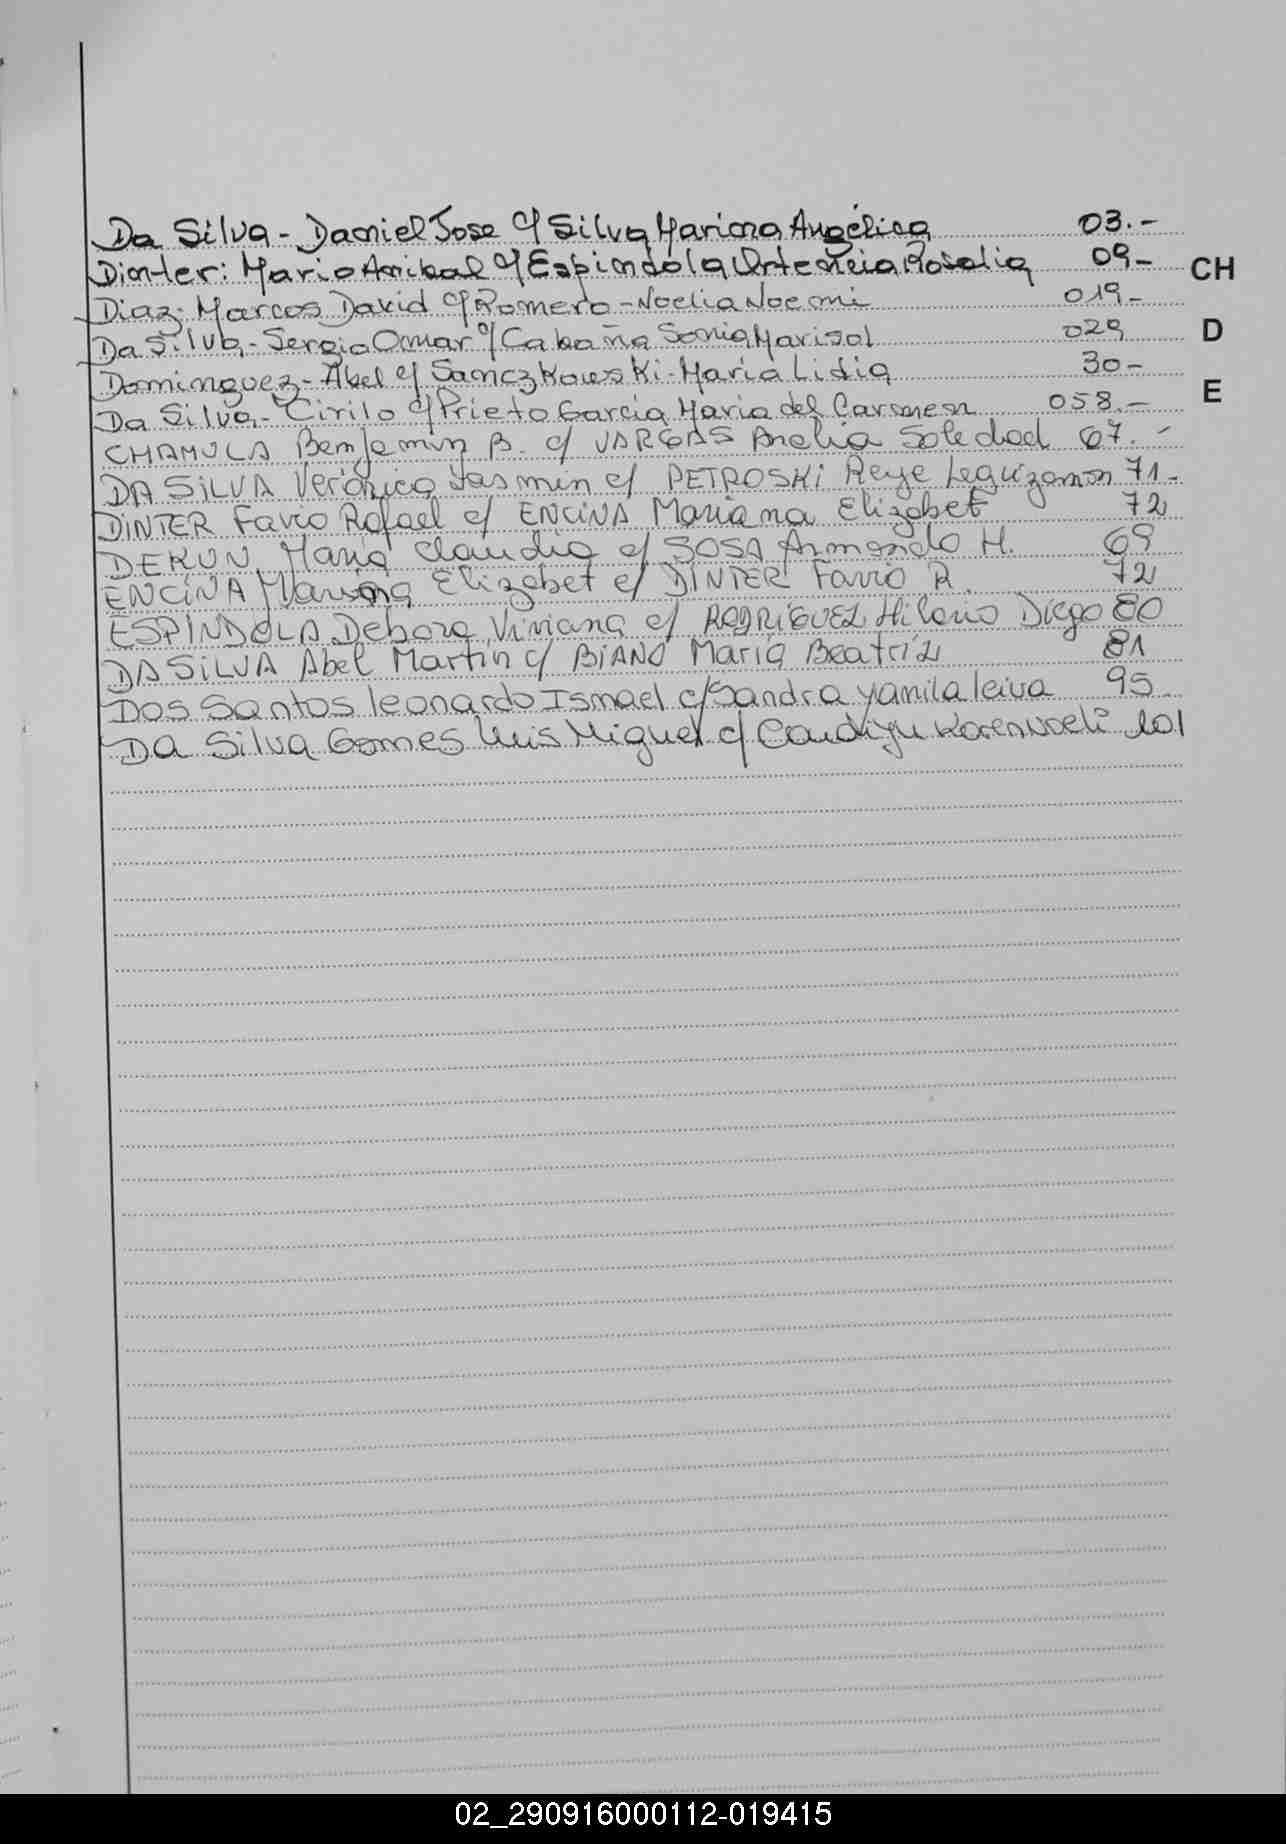 Da Silva - Daniel Jose c/ Silva Marina Angélica 03.-
Dinter: Mario Anibal c/ Espindola Ortencia Rosalia 09- CH
Diaz: Marcos David c/ Romero - Noelia Noemi 019-
Da Silva, - Sergio Omar c/ Cabaña Sonia Marisol 029 D
Dominguez - Abel c/ Sanczkowski - Maria Lidia 30-
Da Silva, - Cirilo c/ Prieto Garcia Maria del Carmen 058.- E
CHAMULA Benjamin B. c/ VARGAS Analia Soledad 67.-
DA SILVA Verónica Yasmin c/ PETROSKI Leguizamon 71-
DINTER Favio Rafael c/ ENCINA Mariana Elizabet 72
DEKUN, Maria Claudia c/ SOSA Armando H. 69
ENCINA Mariana Elizabet c/ DINTER Favio R. 72
ESPINDOLA Debora Viviana c/ RODRIGUEZ Hilario Diego 80
DA SILVA Abel Martin c/ Maria Beatriz 81
Dos Santos leonardo Ismael c/ Sandra yamila leiva 95
Da Silva Gomes Luis Miguel c/ Karen Noeli 101
02_290916000112-019415